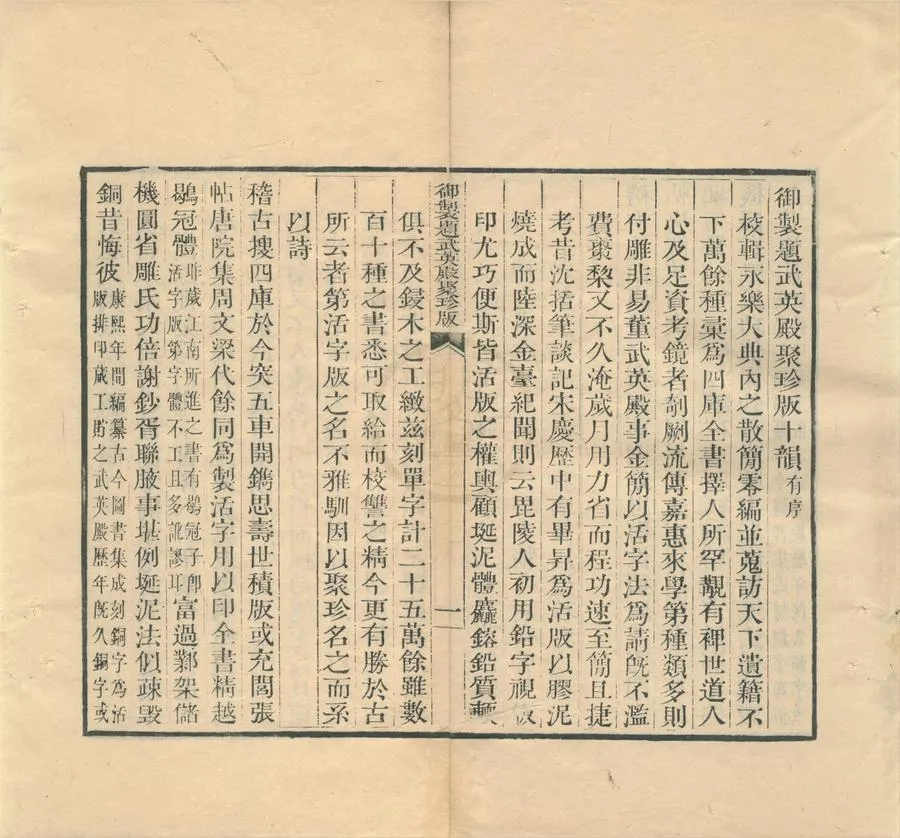 御製題武英殿聚珍版十韻有序
校輯永樂大典內之散簡零編並蒐訪天下遺籍不
下萬餘種彙爲四庫全書擇人所罕觀有裨世道人
心及足資考鏡者剞劂流傳嘉惠來學第種類多則
付雕非易董武英殿事金簡以活字法爲請旣不濫
費棗棃又不久淹歲月用力省而程功速至簡且捷
考昔沈括筆談記宋慶歷中有畢昇爲活版以膠泥
燒成而陸深金臺紀聞則云毘陵人初用鉛字視版
印尤巧便斯皆活版之權輿顧埏泥體麤鎔鉛質輭
御製題武英殿聚珍版
一
俱不及鋟木之工緻茲刻單字計二十五萬餘雖數
百十種之書悉可取給而校讐之精今更有勝於古
所云者第活字版之名不雅馴因以聚珍名之而系
以詩
稽古搜四庫於今突五車開鐫思壽世積版或充閭張
帖唐院集周文梁代餘同爲製活字用以印全書精越
鶡冠體昨歲江南所進之書有鶡冠子卽活字版第字體不工且多訛謬耳富過鄴架儲
機圓省雕氏功倍謝鈔胥聯腋事堪例埏泥法似疎毀
銅昔悔彼康熙年間編纂古今圖書集成刻銅字爲活版排印蕆工貯之武英殿歷年旣久銅字或